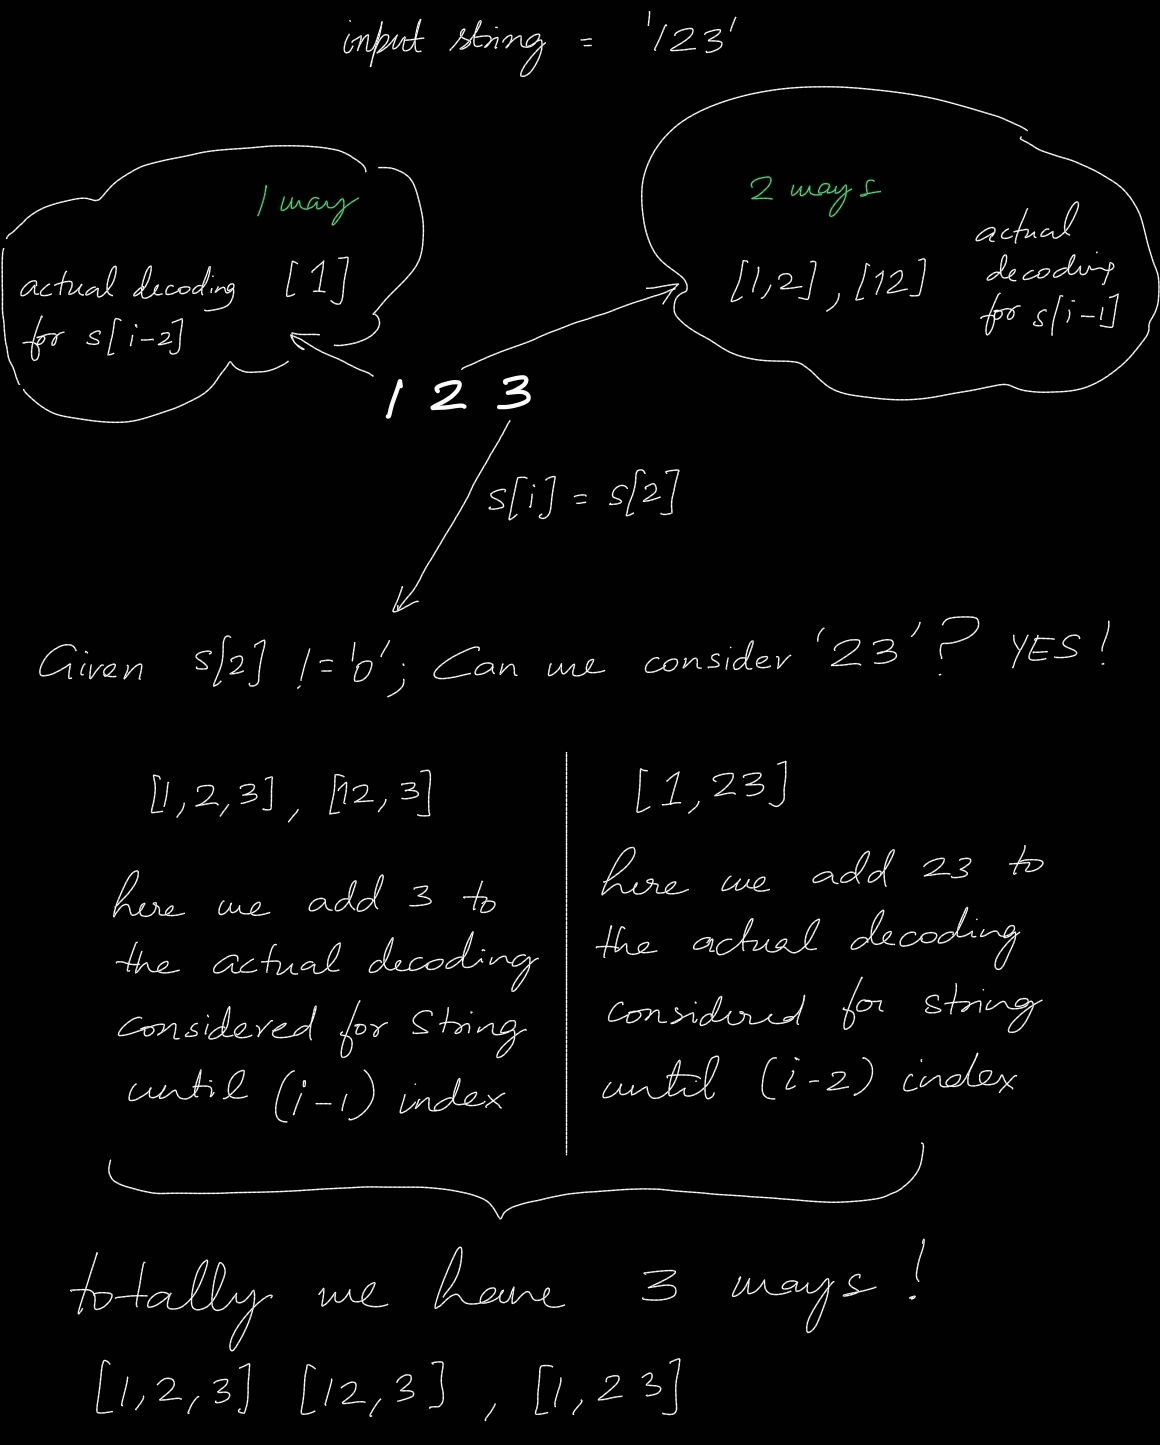 input string = '123'
1 way
actual decoding [1]
for s[i-2]
2 ways
[1,2], [12]
actual
decoding
for s[i-1]
1 2 3
s[i] = s[2]
Given s[2] != '0'; Can we consider '23'? YES!
[1,2,3], [12,3]
here we add 3 to
the actual decoding
considered for String
until (i-1) index
[1,23]
here we add 23 to
the actual decoding
considered for string
until (i-2) index
totally we have 3 ways!
[1,2,3] [12,3] , [1,23]